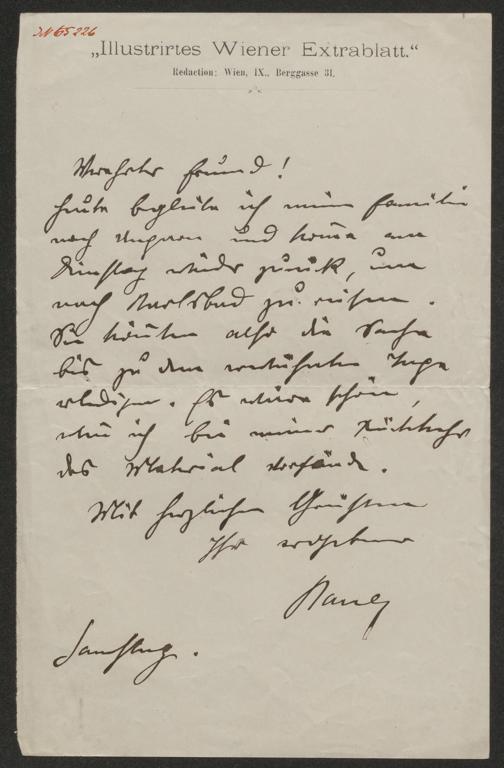 JN 65226
„Illustrirtes Wiener Extrablatt.“
Redaction: Wien, IX., Berggasse 31.
Verehrter Freund!
heute begleite ich meine Familie
nach Ungarn und komme am
Dienstag wieder zurück, um
nach Karlsbad zu reisen.
Sie könnten also die Sache
bis zu dem erwähnten Tage
erledigen. Es wäre schön,
wenn ich bei meiner Rückkehr
das Material vorfände.
Mit herzlichen Grüßen
Ihr ergebener
Samstag.